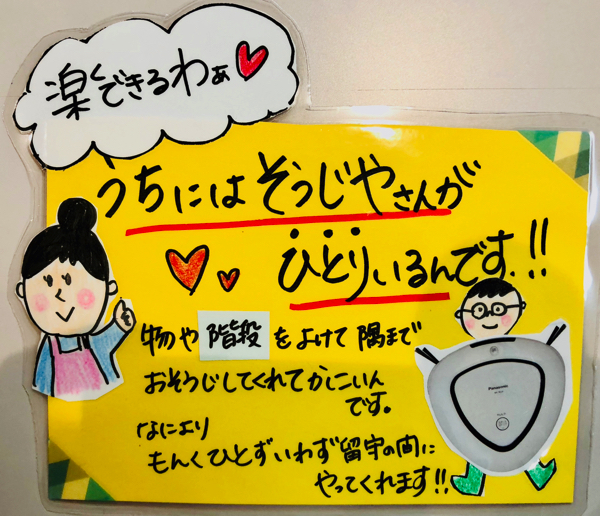 楽できるわぁ
うちにはそうじやさんが
ひとりいるんです.!!
物や階段をよけて隅まで
おそうじしてくれてかしこいん
です。
なにより
もんくひとずいわず留守の間に
やってくれます!!
Panasonic